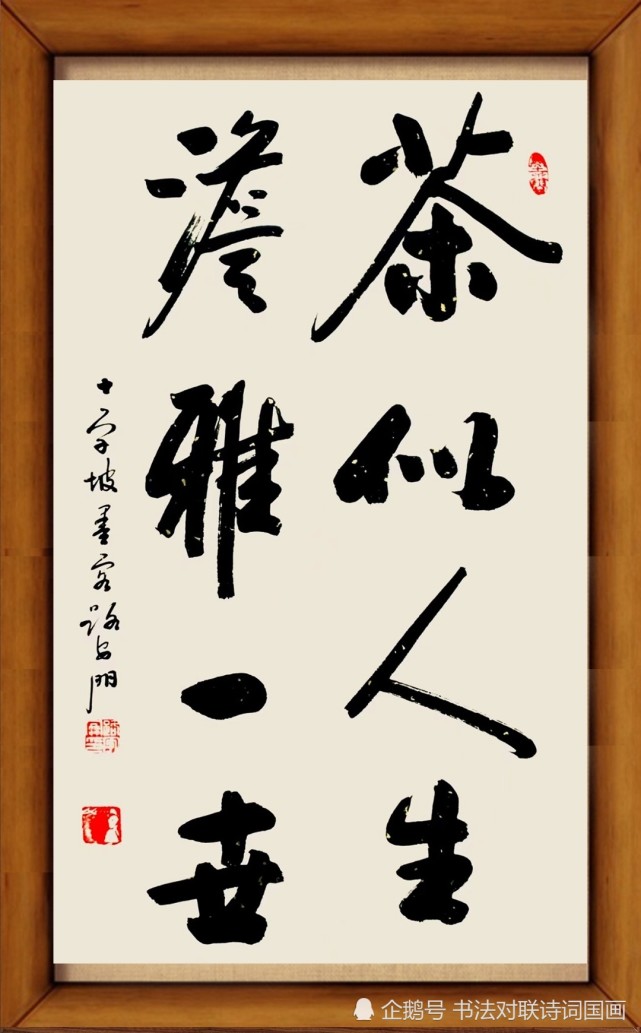 茶似人生
澹雅一世
十字坡墨客路安朋
企鹅号 书法对联诗词国画